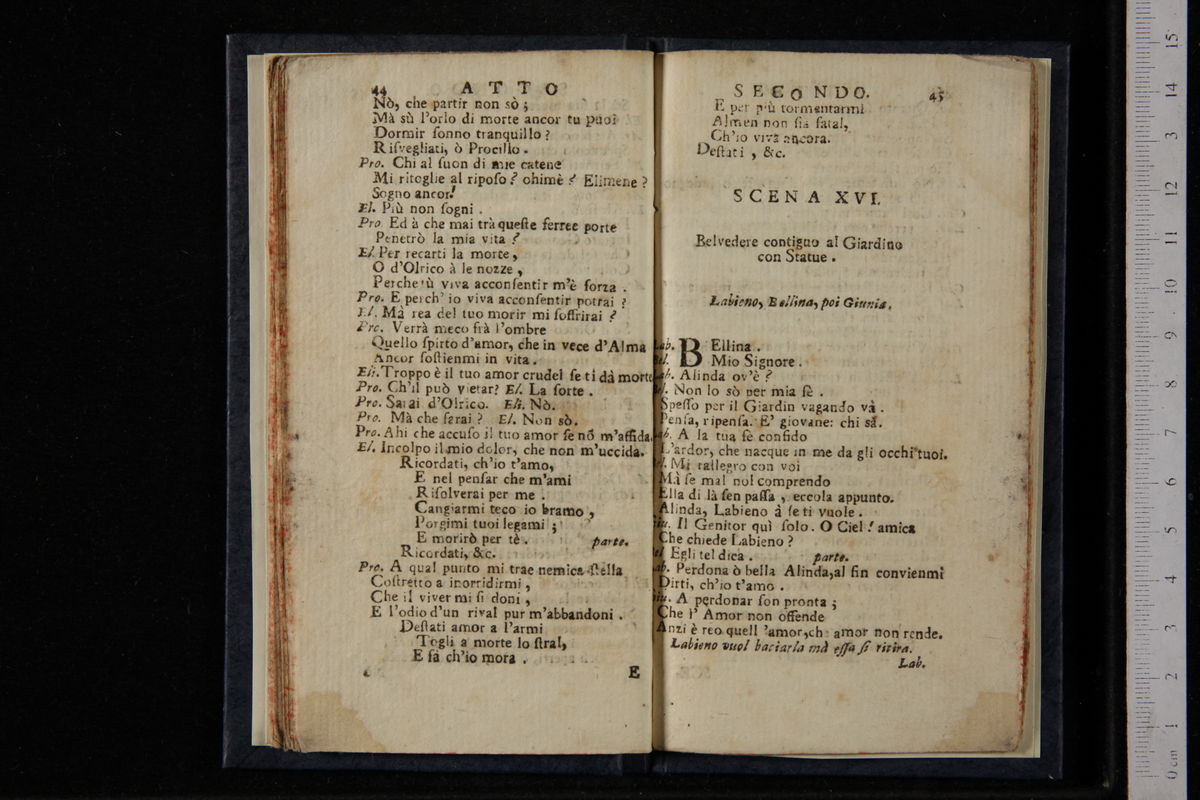 44 ATTO
Nò, che partir non sò;
Mà sù l'orlo di morte ancor tu puoi
Dormir sonno tranquillo?
Risvegliati, ò Procillo.
Pro. Chi al suon di mie catene
Mi ritoglie al riposo? ohimè? Elimene?
Sogno ancor!
El. Più non sogni.
Pro. Ed à che mai trà queste ferree porte
Penetrò la mia vita?
El. Per recarti la morte,
O d'Olrico à le nozze,
Perche tù viva acconsentir m'è forza.
Pro. E perch' io viva acconsentir potrai?
El. Mà rea del tuo morir mi soffrirai?
Pro. Verrà meco frà l'ombre
Quello spirto d'amor, che in vece d'Alma
Ancor sostienmi in vita.
Eli. Troppo è il tuo amor crudel se ti dà morte
Pro. Ch'il può vietar? El. La sorte.
Pro. Sarai d'Olrico. Eli. Nò.
Pro. Mà che farai? El. Non sò.
Pro. Ahi che accuso il tuo amor se nō m'affida.
El. Incolpo il mio dolor, che non m'uccida.
Ricordati, ch'io t'amo,
E nel pensar che m'ami
Risolverai per me.
Cangiarmi teco io bramo,
Porgimi tuoi legami;
E morirò per tè. parte.
Ricordati, &c.
Pro. A qual punto mi trae nemica stella
Costretto a inorridirmi,
Che il viver mi si doni,
E l'odio d'un rival pur m'abbandoni.
Destati amor a l'armi
Togli a morte lo stral,
E fà ch'io mora.
E
SECONDO. 45
E per più tormentarmi
Almen non sia fatal,
Ch'io viva ancora.
Destati, &c.
SCENA XVI.
Belvedere contiguo al Giardino
con Statue.
Labieno, Bellina, poi Giunia.
Lab. BEllina.
el. Mio Signore.
ab. Alinda ov'è?
el. Non lo sò per mia fè.
Spesso per il Giardin vagando và.
Pensa, ripensa. E' giovane: chi sà.
ab. A la tua fè confido
L'ardor, che nacque in me da gli occhi tuoi.
el. Mi rallegro con voi
Mà se mal nol comprendo
Ella di là sen passa, eccola appunto.
Alinda, Labieno à se ti vuole.
iu. Il Genitor quì solo. O Ciel! amica
Che chiede Labieno?
el Egli tel dica. parte.
ab. Perdona ò bella Alinda, al fin convienmi
Dirti, ch'io t'amo.
iu. A perdonar son pronta;
Che l' Amor non offende
Anzi è reo quell 'amor, ch: amor non rende.
Labieno vuol baciarla mà essa si ritira.
Lab.